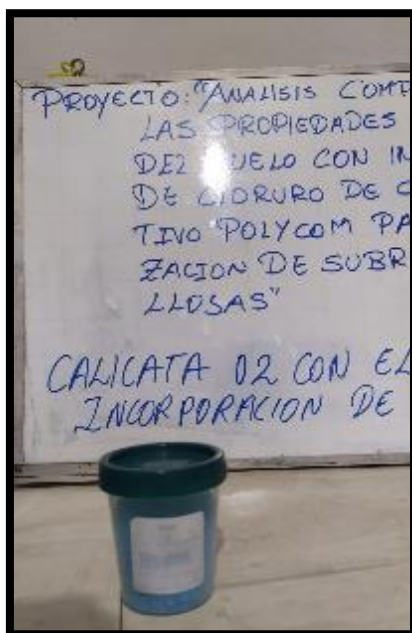 PROYECTO: "ANALISIS COMP
LAS PROPIEDADES
DEL SUELO CON IN
DE CLORURO DE C
TIVO POLYCOM PA
ZACION DE SUBR
LLOSAS"
CALICATA 02 CON EL
INCORPORACION DE